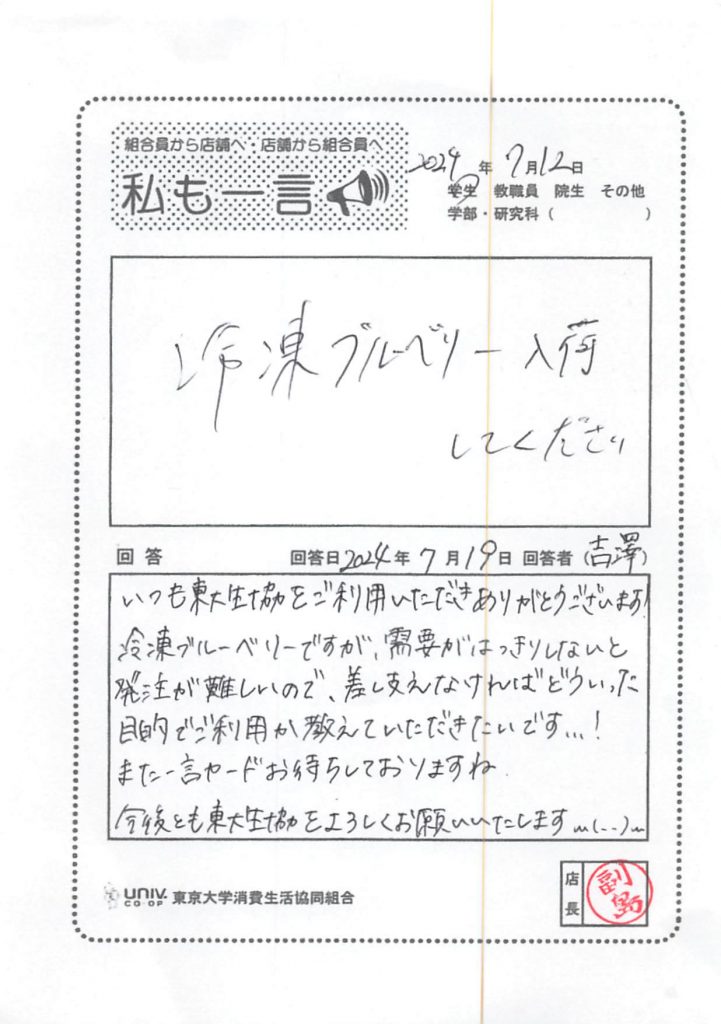 組合員から店舗へ・店舗から組合員へ
私も一言
2024年7月12日
学生 教職員 院生 その他
学部・研究科( )
冷凍ブルーベリー入荷
してください
回答 回答日2024年7月19日 回答者(吉澤)
いつも東大生協をご利用いただきありがとうございます!
冷凍ブルーベリーですが、需要がはっきりしないと
発注が難しいので、差し支えなければどういった
目的でご利用か教えていただきたいです...!
また一言カードお待ちしておりますね
今後とも東大生協をよろしくお願いいたしますm(--)m
UNIV. CO-OP 東京大学消費生活協同組合
店長 副島